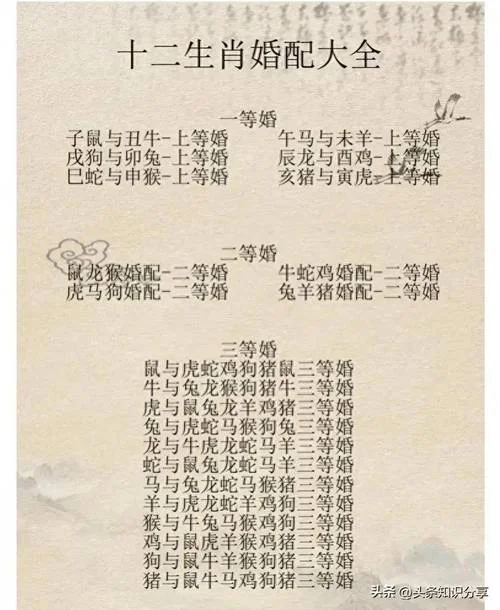 十二生肖婚配大全
一等婚
子鼠与丑牛-上等婚 午马与未羊-上等婚
戌狗与卯兔-上等婚 辰龙与酉鸡-上等婚
巳蛇与申猴-上等婚 亥猪与寅虎-上等婚
二等婚
鼠龙猴婚配-二等婚 牛蛇鸡婚配-二等婚
虎马狗婚配-二等婚 兔羊猪婚配-二等婚
三等婚
鼠与虎蛇鸡狗猪鼠三等婚
牛与兔龙猴狗猪牛三等婚
虎与鼠兔龙羊鸡猪三等婚
兔与虎蛇马猴狗兔三等婚
龙与牛虎龙蛇马羊三等婚
蛇与鼠兔龙蛇马羊三等婚
马与兔龙蛇马猴猪三等婚
羊与虎龙蛇羊鸡狗三等婚
猴与牛兔马猴鸡狗三等婚
鸡与鼠虎羊猴鸡猪三等婚
狗与鼠牛羊猴狗猪三等婚
猪与鼠牛马鸡狗猪三等婚
头条 @头条知识分享